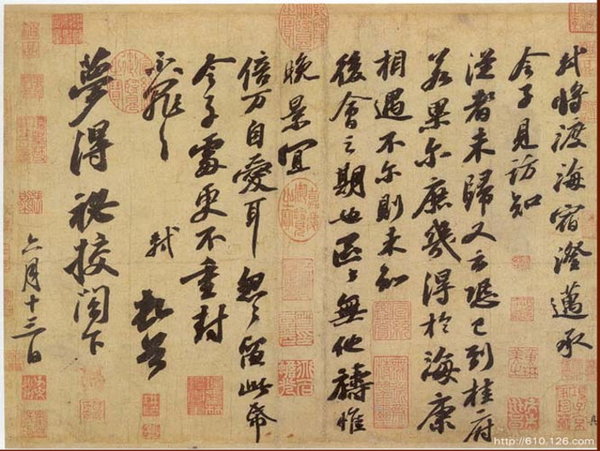 軾將渡海宿澄邁承
令子見訪知
從者未歸又云恐已到桂府
若果尔庶幾得於海康
相遇不尔則未知
後會之期也區〻無他禱惟
晚景宜
倍万自愛耳怱〻留此帋
令子處更不重封
不罪〻
軾 頓首
夢得秘校閣下
六月十三日
http://610.126.com